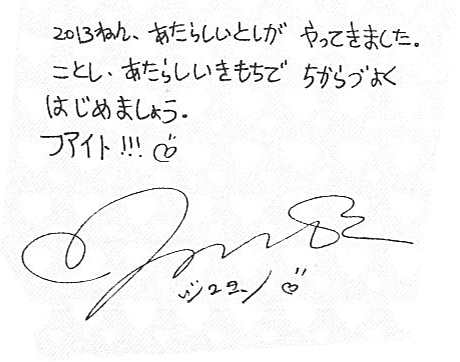 2013ねん、あたらしいとしが やってきました。
ことし、あたらしいきもちで ちからづよく
はじめましょう.
フアイト!!!